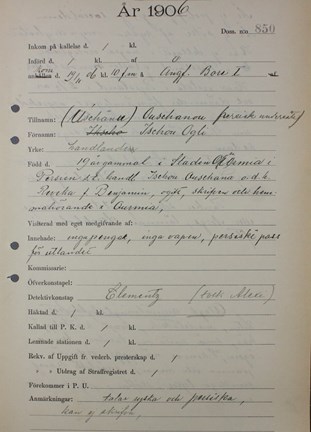 År 1906
Dnm. n:o 850
Inkom på kallelse d. 1 kl.
Införd d. 1 af 0
Kom anhållen d. 19/11 06 kl. 10 f.m. å Ångf. Bore I
Tillnamn: (Uschanu) Auschanou (persisk undersåte)
Förnamn: Ischo Ischou Ogli
Yrke: handlanden
Född d. 19 år gammal i Staden Ourmia i
Persien handl. Ischou Auschana o. d. h.
f. Benjamin, ogift, skrifven och hem-
mahörande i Ourmia,
Visiterad med eget medgifvande af:
Innehade: inga pengar, inga vapen, persiskt pass
för utlandet
Kommissarie:
Öfverkonstapel:
Detektivkonstap Clementz
Häktad d. 1 kl.
Kallad till P. K. d. 1 kl.
Lemnade stationen d. 1 kl.
Rekv. af Uppgift fr. vederb. presterskap d. 1
" " Utdrag af Straffregistret d. 1
Förekommer i P. U.
Anmärkningar: talar ryska och persiska,
kan ej skrifva,